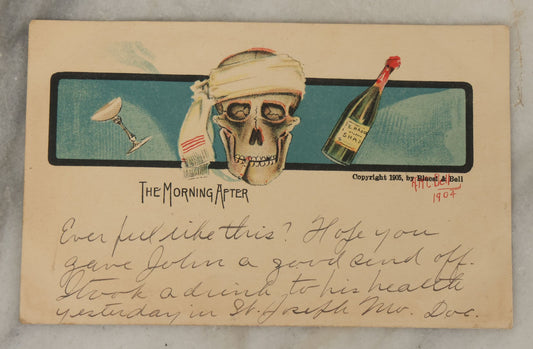 Copyright 1905, by Bluest & Bell
1904
THE MORNING AFTER
Ever feel like this? Hope you
gave John a good send off.
I took a drink to his health
yesterday in St. Joseph Mo. Doc.